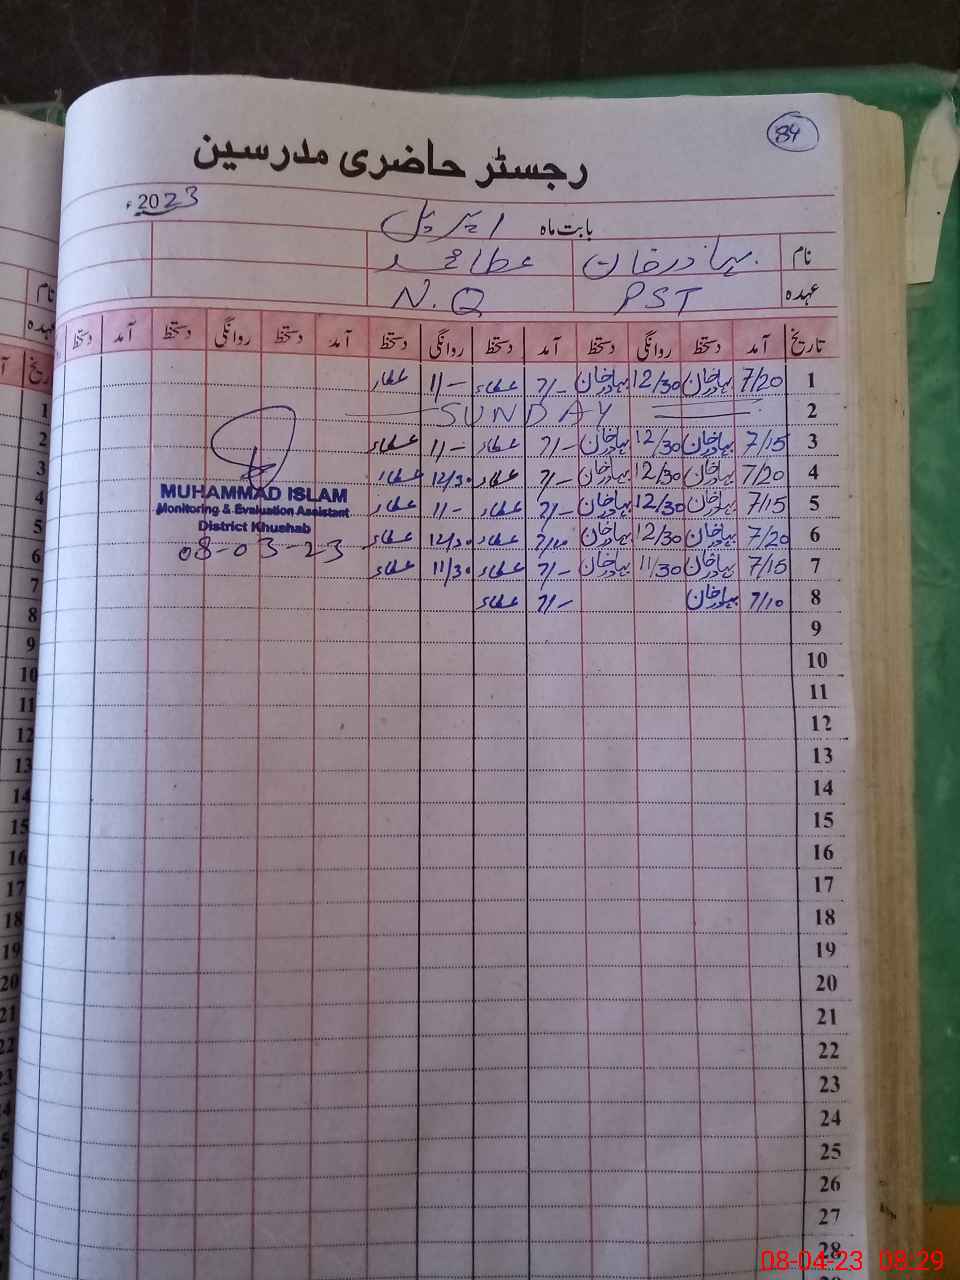 84
رجسٹر حاضری مدرسین
2023ء
بابت ماہ اپریل
نام بہادر خان عطا محمد
عہدہ PST N.Q
تاریخ آمد دستخط روانگی دستخط آمد دستخط روانگی دستخط آمد دستخط روانگی دستخط آمد دستخط
1 7/20 بہادر خان 12/30 بہادر خان 7/- عطاء 11/- عطاء
2 SUNDAY
3 7/15 بہادر خان 12/30 بہادر خان 7/- عطاء 11/- عطاء
4 7/20 بہادر خان 12/30 بہادر خان 7/- عطاء 12/30 عطاء
5 7/15 بہادر خان 12/30 بہادر خان 7/- عطاء 11/- عطاء
6 7/20 بہادر خان 12/30 بہادر خان عطاء 12/30 عطاء
7 7/15 بہادر خان 11/30 بہادر خان 7/- عطاء 11/30 عطاء
8 7/10 بہادر خان 7/- عطاء
MUHAMMAD ISLAM
Monitoring & Evaluation Assistant
District Khushab
08-03-23
9
10
11
12
13
14
15
16
17
18
19
20
21
22
23
24
25
26
27
28
نام
عہدہ
1
2
3
4
5
6
7
8
9
10
11
12
13
14
15
16
17
18
19
20
21
08-04-23 08:29